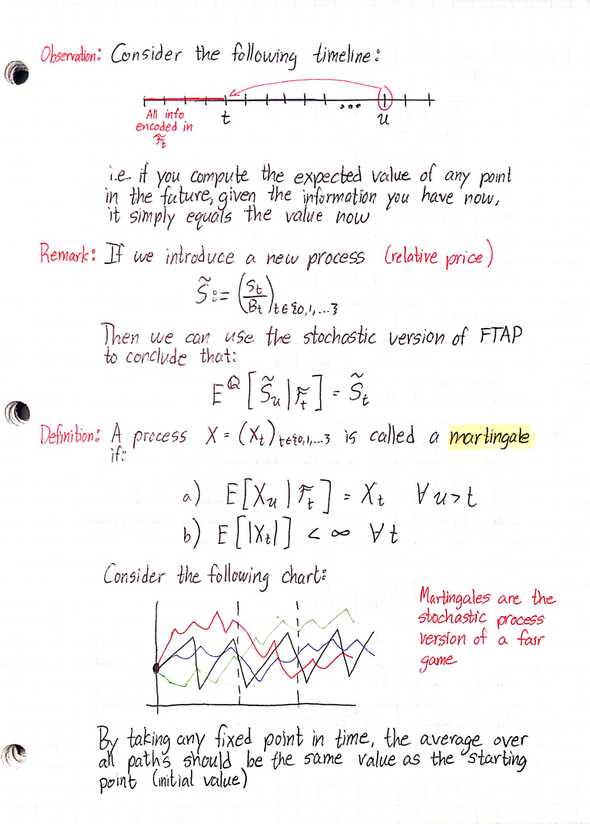 Observation: Consider the following timeline:
All info
encoded in
ℱ̃_t
t
...
u
i.e. if you compute the expected value of any point
in the future, given the information you have now,
it simply equals the value now
Remark: If we introduce a new process (relative price)
S̃ := (S_t/B_t)_{t∈{0,1,...}}
Then we can use the stochastic version of FTAP
to conclude that:
E^Q[S̃_u|ℱ_t] = S̃_t
Definition: A process X = (X_t)_{t∈{0,1,...}} is called a martingale
if:
a) E[X_u|ℱ_t] = X_t ∀ u>t
b) E[|X_t|] < ∞ ∀ t
Consider the following chart:
Martingales are the
stochastic process
version of a fair
game
By taking any fixed point in time, the average over
all paths should be the same value as the starting
point (initial value)